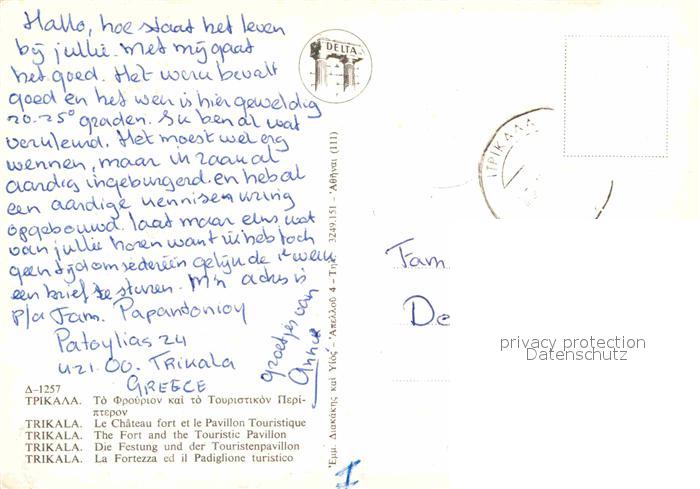 Hallo, hoe staat het leven
bij jullie. Met mij gaat
het goed. Het werk bevalt
goed en het weer is hier geweldig
20-25° graden. Ik ben al wat
verkleurd. Het moest wel erg
wennen, maar ik raak al
aardig ingeburgerd en heb al
een aardige kennissenkring
opgebouwd. Laat maar eens wat
van jullie horen want ik heb toch
geen tijd om iedereen gelijk de 1e week
een brief te sturen. M'n adres is
p/a Fam. Papandoniou
Patoylias 24
421.00. Trikala
GREECE
groetjes van
Annie
Δ-1257
ΤΡΙΚΑΛΑ. Τὸ Φρούριον καὶ τὸ Τουριστικὸν Περί-
πτερον
TRIKALA. Le Château fort et le Pavillon Touristique
TRIKALA. The Fort and the Touristic Pavillon
TRIKALA. Die Festung und der Touristenpavillon
TRIKALA. La Fortezza ed il Padiglione turistico
DELTA
Ἐμμ. Διακάκης καὶ Υἱός - Ἀπελλοῦ 4 - Τηλ. 3249.151 - Ἀθῆναι (111)
ΤΡΙΚΑΛΑ
Fam
De
privacy protection
Datenschutz